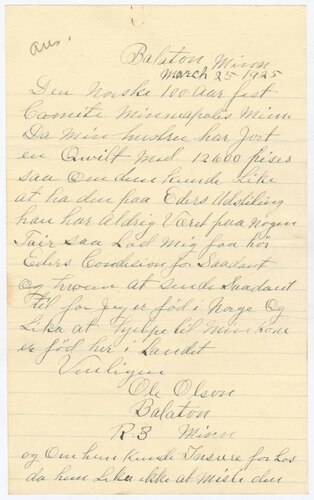 Ans.
Balaton, Minn
March 25 - 1925
Den Norske 100-Aar fest
Comite Minneapolis Minn
Da Min hustru har Jort
en Qwilt Med 12000 Peises
saa Om dem kunde Like
at ha den paa Eders Udstiling
han har Aldrig Været paa Nogen
Fair saa Lad Mig faa hør
Eders Condision for Saadant
Og hvorn at sende Saadant
til for Jeg er fød i Norge Og
Lika at hjelpe til Min kone
er fød her i Landet
Venligen
Ole Olson
Balaton
R 3 Minn
og Om hun kunde Insure for Los
da hun Like ikke at Miste den